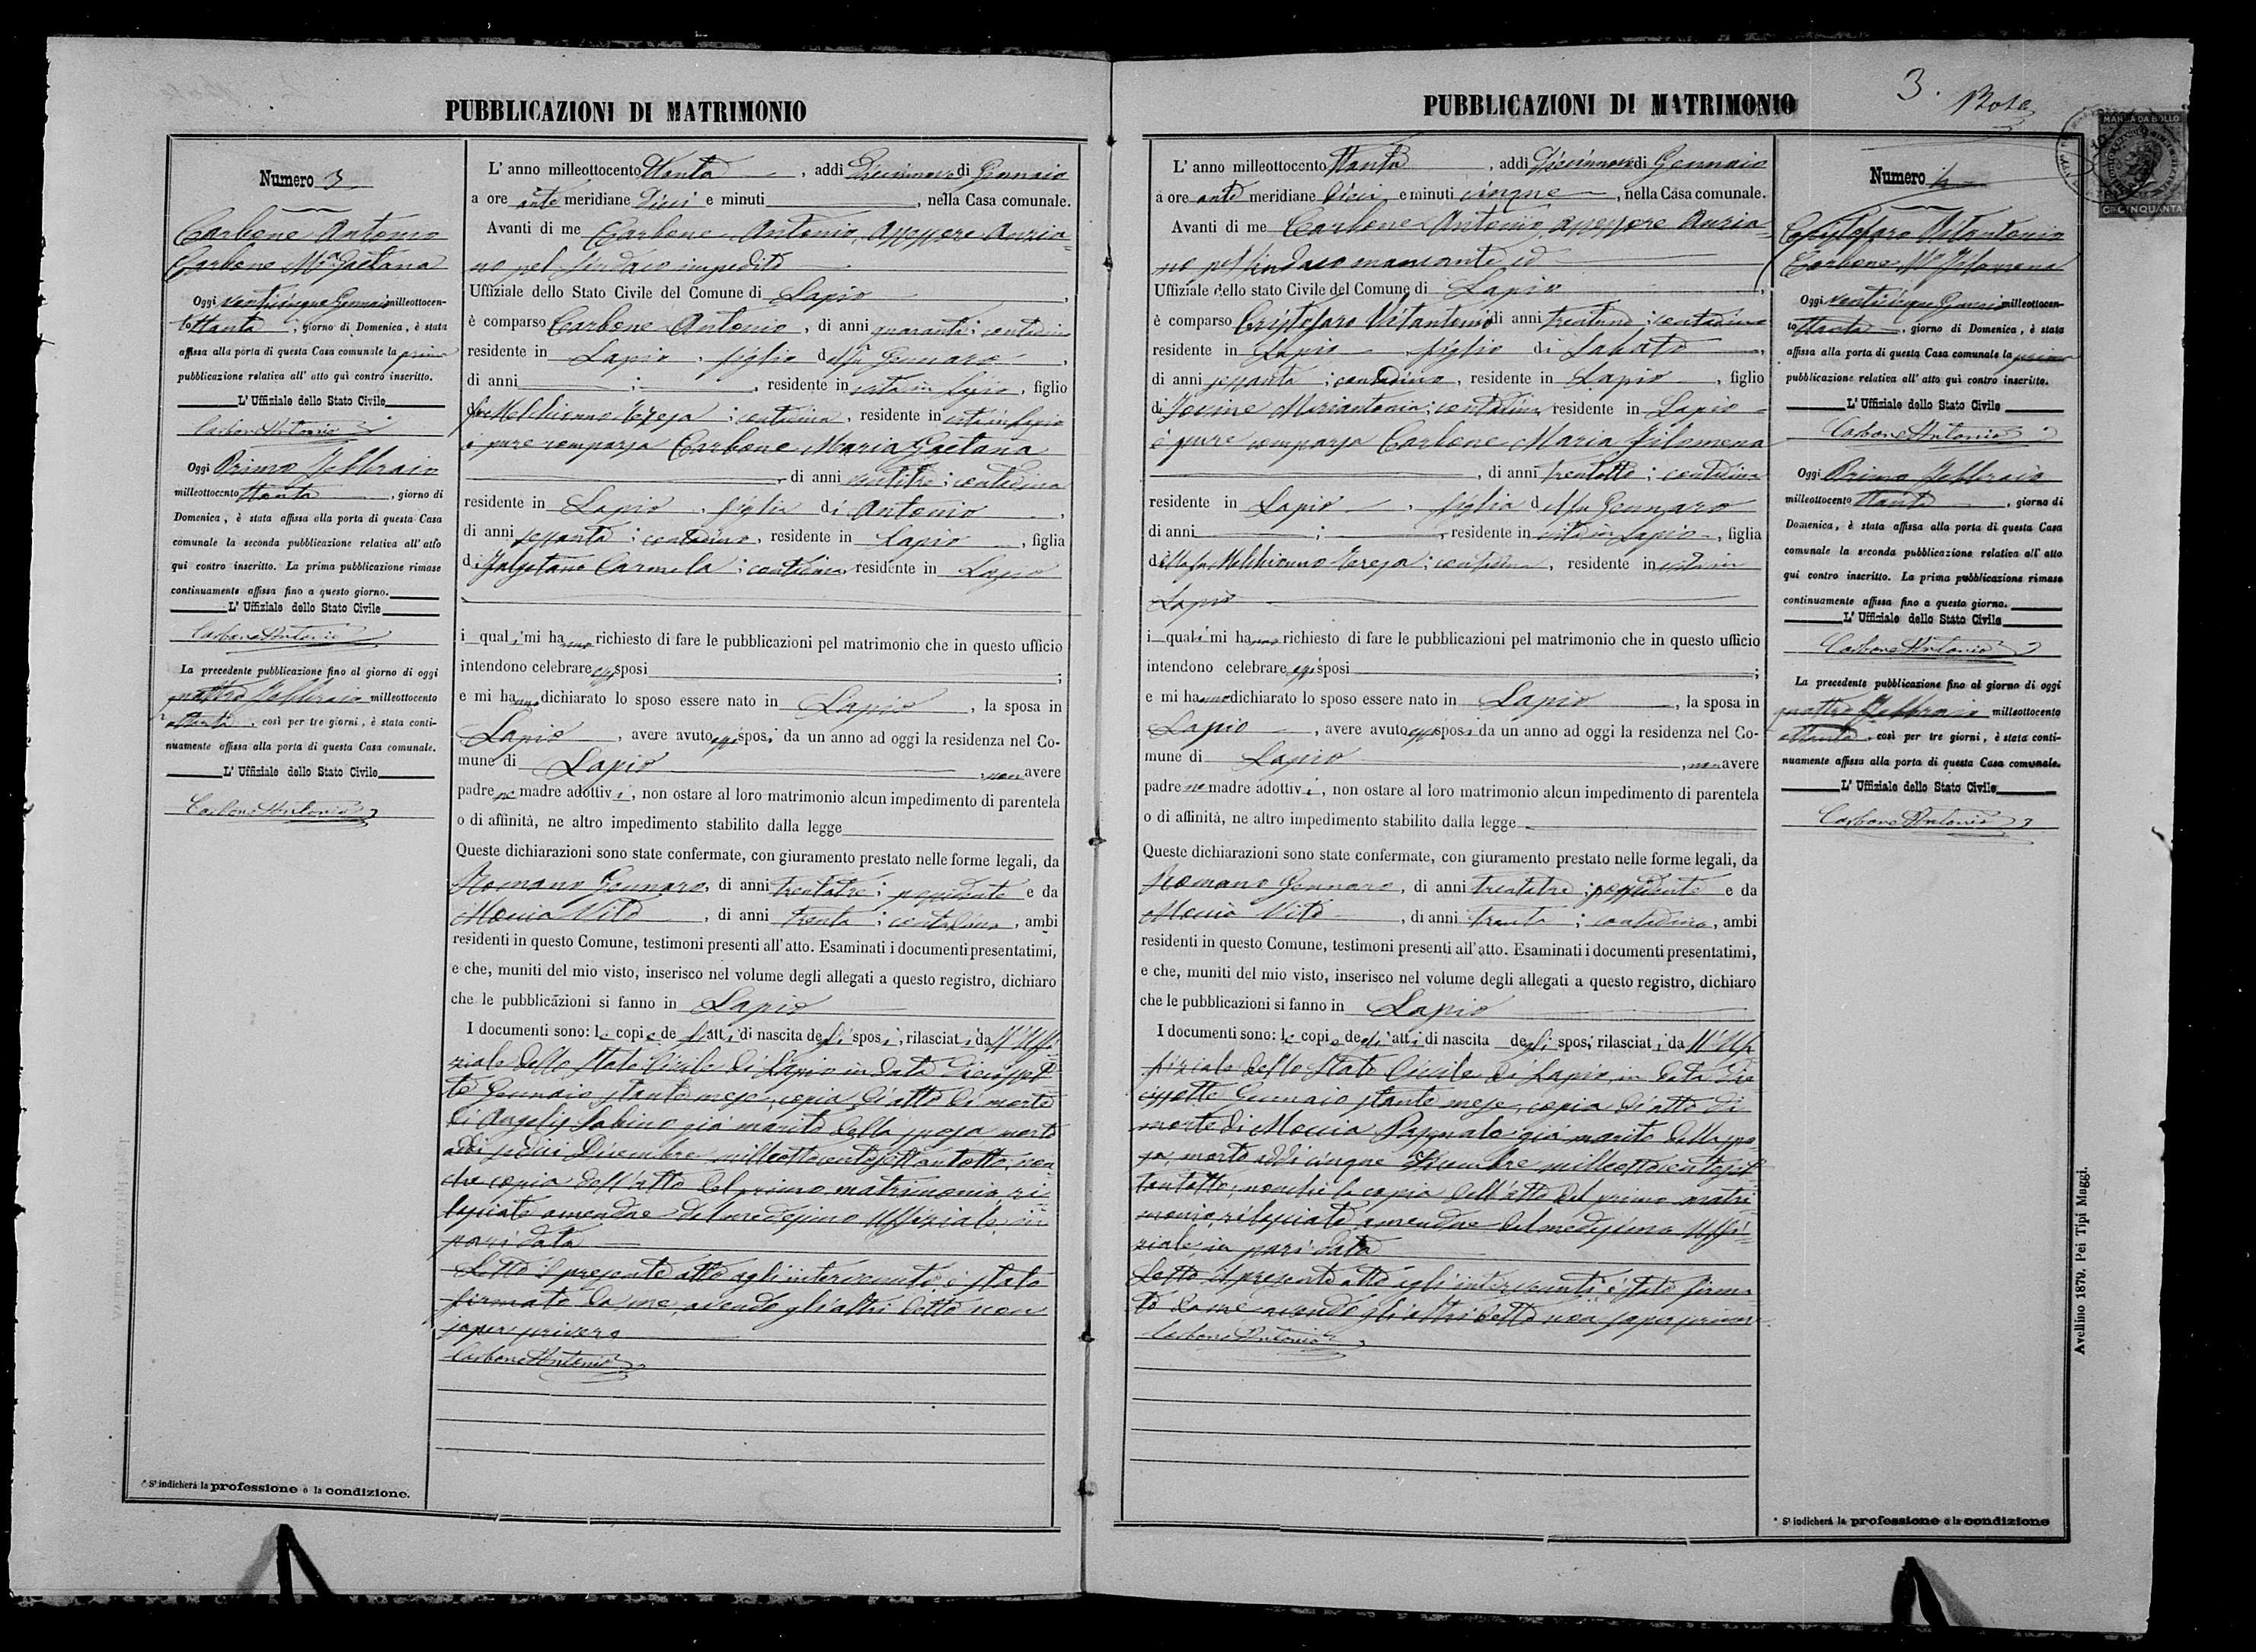 PUBBLICAZIONI DI MATRIMONIO
Numero 3
Carbone Antonio
Carbone Mª Gaetana
Oggi venticinque Gennaio milleottocen-
to ottanta, giorno di Domenica, è stata
affissa alla porta di questa Casa comunale la prima
pubblicazione relativa all' atto quì contro inscritto.
L' Uffiziale dello Stato Civile
Carbone Antonio
Oggi Primo Febbraio
milleottocento ottanta, giorno di
Domenica, è stata affissa alla porta di questa Casa
comunale la seconda pubblicazione relativa all' atto
qui contro inscritto. La prima pubblicazione rimase
continuamente affissa fino a questo giorno.
L' Uffiziale dello Stato Civile
Carbone Antonio
La precedente pubblicazione fino al giorno di oggi
quattro Febbraio milleottocento
ottanta, così per tre giorni, è stata conti-
nuamente affissa alla porta di questa Casa comunale.
L' Uffiziale dello Stato Civile
Carbone Antonio
* Si indicherà la professione o la condizione.
L' anno milleottocento ottanta, addì Diciannove di Gennaio
a ore anti meridiane Dieci e minuti , nella Casa comunale.
Avanti di me Carbone Antonio, assessore Anzia-
no pel Sindaco impedito
Uffiziale dello Stato Civile del Comune di Lapio,
è comparso Carbone Antonio, di anni quaranta; contadino
residente in Lapio, figlio del fu Gennaro,
di anni ; , residente in vita in Lapio, figlio
della fu Melchionno Teresa; contadina, residente in vita in Lapio
è pure comparsa Carbone Maria Gaetana
di anni ventitre; contadina
residente in Lapio, figlia di Antonio,
di anni sessanta; contadino, residente in Lapio, figlia
di Carmela; contadina, residente in Lapio
i quali mi hanno richiesto di fare le pubblicazioni pel matrimonio che in questo ufficio
intendono celebrare essi sposi ;
e mi hanno dichiarato lo sposo essere nato in Lapio, la sposa in
Lapio, avere avuto essi sposi da un anno ad oggi la residenza nel Co-
mune di Lapio, non avere
padre ne madre adottivi, non ostare al loro matrimonio alcun impedimento di parentela
o di affinità, ne altro impedimento stabilito dalla legge
Queste dichiarazioni sono state confermate, con giuramento prestato nelle forme legali, da
Romano Gennaro, di anni trentatre; possidente e da
Moccia Vito, di anni trenta; contadino, ambi
residenti in questo Comune, testimoni presenti all' atto. Esaminati i documenti presentatimi,
e che, muniti del mio visto, inserisco nel volume degli allegati a questo registro, dichiaro
che le pubblicazioni si fanno in Lapio
I documenti sono: le copie degli atti di nascita degli sposi, rilasciati da ll' Uffi-
ziale dello Stato Civile di Lapio in data diciasset-
te Gennaio stante mese, copia di atto di morte
di Angelis Sabino già marito della sposa, morto
addì sedici Dicembre milleottocentosettantotto, non
che copia dell'atto del primo matrimonio, ri-
lasciate amendue dal medesimo Uffiziale in
pari data
Letto il presente atto agli intervenuti è stato
firmato da me avendo gli altri detto non
saper scrivere
Carbone Antonio
PUBBLICAZIONI DI MATRIMONIO
3.
MARCA DA BOLLO
CI CINQUANTA
L' anno milleottocento ottanta, addì Diciannove di Gennaio
a ore anti meridiane Dieci e minuti cinque, nella Casa comunale.
Avanti di me Carbone Antonio, assessore Anzia-
no pel Sindaco mancante ed
Uffiziale dello stato Civile del Comune di Lapio,
è comparso Cristofaro Vitantonio di anni trentuno; contadino
residente in Lapio, figlio di Sabato,
di anni sessanta; contadino, residente in Lapio, figlio
di Iovine Mariantonia; contadina, residente in Lapio
è pure comparsa Carbone Maria Filomena
, di anni trentotto; contadina
residente in Lapio, figlia del fu Gennaro
di anni ; , residente in vita in Lapio, figlia
della fu Melchionno Teresa; contadina, residente in vita in
Lapio
i quali mi hanno richiesto di fare le pubblicazioni pel matrimonio che in questo ufficio
intendono celebrare essi sposi ;
e mi hanno dichiarato lo sposo essere nato in Lapio, la sposa in
Lapio, avere avuto essi sposi da un anno ad oggi la residenza nel Co-
mune di Lapio, non avere
padre ne madre adottivi, non ostare al loro matrimonio alcun impedimento di parentela
o di affinità, ne altro impedimento stabilito dalla legge
Queste dichiarazioni sono state confermate, con giuramento prestato nelle forme legali, da
Romano Gennaro, di anni trentatre; possidente e da
Moccia Vito, di anni trenta; contadino, ambi
residenti in questo Comune, testimoni presenti all' atto. Esaminati i documenti presentatimi,
e che, muniti del mio visto, inserisco nel volume degli allegati a questo registro, dichiaro
che le pubblicazioni si fanno in Lapio
I documenti sono: le copie degli atti di nascita degli sposi, rilasciati da ll' Uf-
fiziale dello Stato Civile di Lapio, in data dic-
iassette Gennaio stante mese, copia di atto di
morte di Moccia Pasquale già marito della spo-
sa, morto addì cinque Dicembre milleottocentoset-
tantotto, nonchè la copia dell'atto del primo matri-
monio, rilasciate amendue dal medesimo Uffi-
ziale in pari data
Letto il presente atto agli intervenuti è stato firma-
to da me avendo gli altri detto non saper scrivere
Carbone Antonio
Numero 4
Cristofaro Vitantonio
Carbone Mª Filomena
Oggi venticinque Gennaio milleottocen-
to ottanta, giorno di Domenica, è stata
affissa alla porta di questa Casa comunale la prima
pubblicazione relativa all' atto quì contro inscritto.
L' Uffiziale dello Stato Civile
Carbone Antonio
Oggi Primo Febbraio
milleottocento ottanta, giorno di
Domenica, è stata affissa alla porta di questa Casa
comunale la seconda pubblicazione relativa all' atto
qui contro inscritto. La prima pubblicazione rimase
continuamente affissa fino a questo giorno.
L' Uffiziale dello Stato Civile
Carbone Antonio
La precedente pubblicazione fino al giorno di oggi
quattro Febbraio milleottocento
ottanta, così per tre giorni, è stata conti-
nuamente affissa alla porta di questa Casa comunale.
L' Uffiziale dello Stato Civile
Carbone Antonio
* Si indicherà la professione o la condizione
Avellino 1879. Pei Tipi Maggi.